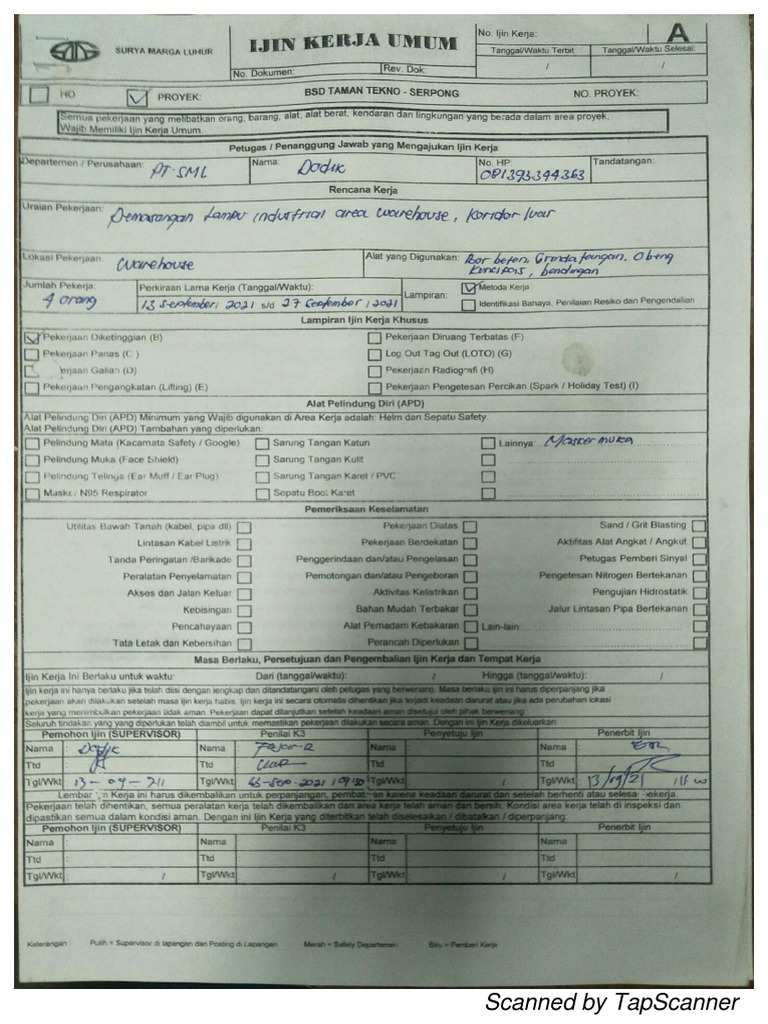 SURYA MARGA LUHUR
IJIN KERJA UMUM
No. Ijin Kerja:
A
Tanggal/Waktu Terbit
Tanggal/Waktu Selesai:
/ /
No. Dokumen:
Rev. Dok:
HO
PROYEK:
BSD TAMAN TEKNO - SERPONG
NO. PROYEK:
Semua pekerjaan yang melibatkan orang, barang, alat, alat berat, kendaran dan lingkungan yang berada dalam area proyek.
Wajib Memiliki Ijin Kerja Umum.
Petugas / Penanggung Jawab yang Mengajukan Ijin Kerja
Departemen / Perusahaan: PT. SML
Nama: Dodik
No. HP 081393394363
Tandatangan:
Rencana Kerja
Uraian Pekerjaan: Pemasangan Lampu industrial area warehouse, Koridor luar
Lokasi Pekerjaan warehouse
Alat yang Digunakan: Bor beton, Grinda tangan, Obeng
Jumlah Pekerja: 4 orang
Perkiraan Lama Kerja (Tanggal/Waktu):
13 September 2021 s/d 27 September 2021
Lampiran:
Metoda Kerja
Identifikasi Bahaya, Penilaian Resiko dan Pengendalian
Lampiran Ijin Kerja Khusus
Pekerjaan Diketinggian (B)
Pekerjaan Diruang Terbatas (F)
Pekerjaan Panas (C )
Log Out Tag Out (LOTO) (G)
erjaan Galian (D)
Pekerjaan Radiografi (H)
Pekerjaan Pengangkatan (Lifting) (E)
Pekerjaan Pengetesan Percikan (Spark / Holiday Test) (I)
Alat Pelindung Diri (APD)
Alat Pelindung Diri (APD) Minimum yang Wajib digunakan di Area Kerja adalah: Helm dan Sepatu Safety.
Alat Pelindung Diri (APD) Tambahan yang diperlukan:
Pelindung Mata (Kacamata Safety / Google)
Sarung Tangan Katun
Lainnya: Masker muka
Pelindung Muka (Face Shield)
Sarung Tangan Kulit
Pelindung Telinga (Ear Muff / Ear Plug)
Sarung Tangan Karet / PVC
Masker N95 Respirator
Sepatu Boot Karet
Pemeriksaan Keselamatan
Utilitas Bawah Tanah (kabel, pipa dll)
Pekerjaan Diatas
Sand / Grit Blasting
Lintasan Kabel Listrik
Pekerjaan Berdekatan
Aktifitas Alat Angkat / Angkut
Tanda Peringatan /Barikade
Penggerindaan dan/atau Pengelasan
Petugas Pemberi Sinyal
Peralatan Penyelamatan
Pemotongan dan/atau Pengeboran
Pengetesan Nitrogen Bertekanan
Akses dan Jalan Keluar
Aktivitas Kelistrikan
Pengujian Hidrostatik
Kebisingan
Bahan Mudah Terbakar
Jalur Lintasan Pipa Bertekanan
Pencahayaan
Alat Pemadam Kebakaran
Lain-lain
Tata Letak dan Kebersihan
Perancah Diperlukan
Masa Berlaku, Persetujuan dan Pengembalian Ijin Kerja dan Tempat Kerja
Ijin Kerja Ini Berlaku untuk waktu:
Dari (tanggal/waktu): /
Hingga (tanggal/waktu): /
Ijin kerja ini hanya berlaku jika telah diisi dengan lengkap dan ditandatangani oleh petugas yang berwenang. Masa berlaku ijin ini harus diperpanjang jika
pekerjaan akan dilakukan setelah masa ijin kerja habis. Ijin kerja ini secara otomatis dihentikan jika terjadi keadaan darurat atau jika ada perubahan lokasi
kerja yang menimbulkan pekerjaan tidak aman. Pekerjaan dapat dilanjutkan setelah keadaan aman disetujui oleh pihak berwenang
Seluruh tindakan yang yang diperlukan telah diambil untuk memastikan pekerjaan dilakukan secara aman. Dengan ini Ijin Kerja dikeluarkan:
Pemohon Ijin (SUPERVISOR)
Penilai K3
Penyetuju Ijin
Penerbit Ijin
Nama : Dodik
Nama : Fajar-R
Nama
Nama
Ttd
Ttd
Ttd
Ttd
Tgl/Wkt
Tgl/Wkt
Tgl/Wkt
Tgl/Wkt
Lembar Kerja ini harus dikembalikan untuk perpanjangan, karena keadaan darurat dan setelah berhenti atau
Pekerjaan telah dihentikan, semua peralatan kerja telah dikembalikan dan area kerja telah aman dan bersih. Kondisi area kerja telah di inspeksi dan
dipastikan semua dalam kondisi aman. Dengan ini Ijin Kerja yang diterbitkan telah diselesaikan / dibatalkan / diperpanjang:
Pemohon Ijin (SUPERVISOR)
Penilai K3
Penyetuju Ijin
Penerbit Ijin
Nama :
Nama :
Nama
Nama
Ttd :
Ttd :
Ttd
Ttd
Tgl/Wkt : /
Tgl/Wkt : /
Tgl/Wkt /
Tgl/Wkt /
Keterangan :
Putih = Supervisor di lapangan dan Posting di Lapangan
Merah = Safety Departemen
Biru = Pemberi Kerja
Scanned by TapScanner